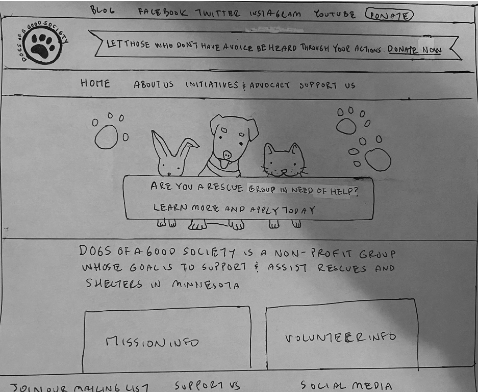 BLOG FACEBOOK TWITTER INSTAGRAM YOUTUBE DONATE
DOGS OF A GOOD SOCIETY
LET THOSE WHO DON'T HAVE A VOICE BE HEARD THROUGH YOUR ACTIONS DONATE NOW
HOME ABOUT US INITIATIVES & ADVOCACY SUPPORT US
ARE YOU A RESCUE GROUP IN NEED OF HELP?
LEARN MORE AND APPLY TODAY
DOGS OF A GOOD SOCIETY IS A NON-PROFIT GROUP
WHOSE GOAL IS TO SUPPORT & ASSIST RESCUES AND
SHELTERS IN MINNESOTA
MISSION INFO
VOLUNTEER INFO
JOIN OUR MAILING LIST SUPPORT US SOCIAL MEDIA